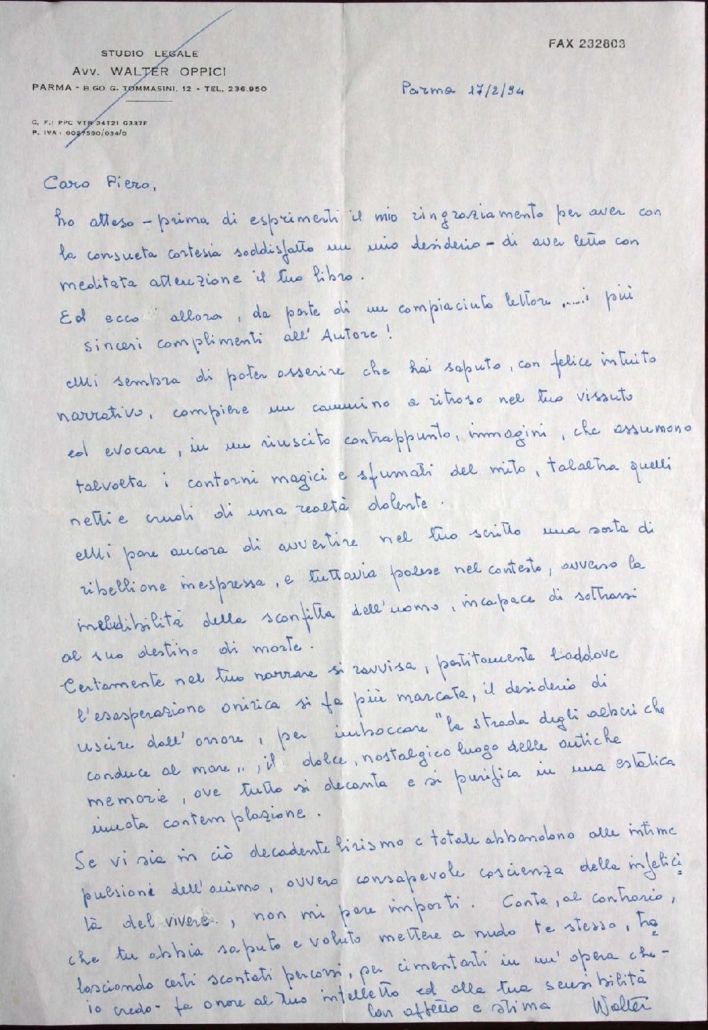 STUDIO LEGALE
Avv. WALTER OPPICI
PARMA - B.GO G. TOMMASINI, 12 - TEL. 236.950
FAX 232803
C. F.: PPC VTR 34T21 G337F
P. IVA:
Parma 17/2/94
Caro Piero,
ho atteso - prima di esprimerti il mio ringraziamento per aver con
la consueta cortesia soddisfatto un mio desiderio - di aver letto con
meditata attenzione il tuo libro.
Ed ecco allora, da parte di un compiaciuto lettore ..... i più
sinceri complimenti all'Autore!
Mi sembra di poter asserire che hai saputo, con felice intuito
narrativo, compiere un cammino a ritroso nel tuo vissuto
ed evocare, in un riuscito contrappunto, immagini, che assumono
talvolta i contorni magici e sfumati del mito, talaltra quelli
netti e crudi di una realtà dolente.
Mi pare ancora di avvertire nel tuo scritto una sorta di
ribellione inespressa, e tuttavia palese nel contesto, avverso la
ineludibilità della sconfitta dell'uomo, incapace di sottrarsi
al suo destino di morte.
Certamente nel tuo narrare si ravvisa, partitamente laddove
l'esasperazione onirica si fa più marcata, il desiderio di
uscire dall' , per imboccare "la strada degli alberi che
conduce al mare", il dolce, nostalgico luogo delle antiche
memorie, ove tutto si decanta e si purifica in una estatica
immota contemplazione.
Se vi sia in ciò decadente lirismo e totale abbandono alle intime
pulsioni dell'animo, ovvero consapevole coscienza della infelici
tà del vivere, non mi pare importi. Conta, al contrario,
che tu abbia saputo e voluto mettere a nudo te stesso, tra
lasciando certi scontati percorsi, per cimentarti in un'opera che -
io credo - fa onore al tuo intelletto ed alla tua sensibilità
Con affetto e stima Walter